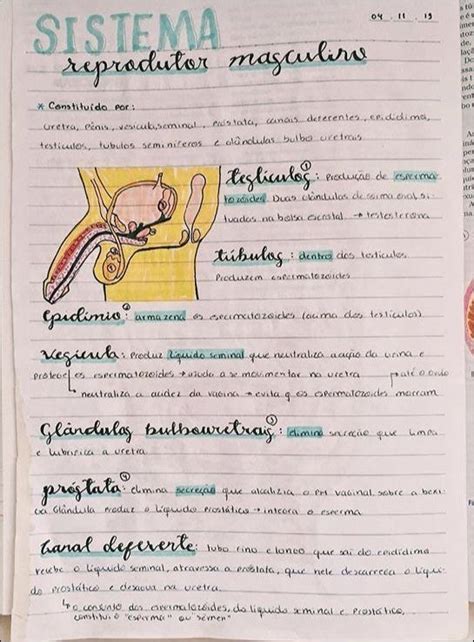 04 . 11 . 19
SISTEMA
reprodutor masculino
* Constituído por:
uretra, pênis, vesícula seminal, próstata, canais deferentes, epidídima,
testículos, tubulos seminiferos e glândulas bulbo uretrais
testículos ①: Produção de esperma
tozoides. Duas glândulas de forma oval, si
tuadas na bolsa escrotal → testosterona
túbulos: dentro dos testículos.
Produzem espermatozoides
Epidímio ②: armazena os espermatozoides (acima dos testículos)
Vesícula: Produz líquido seminal que neutraliza a ação da urina e
protege os espermatozoides → ajuda a se movimentar na uretra → até o
neutraliza a acidez da vagina → evita q os espermatozoides morram
Glândulas bulbouretrais ③: elimina secreção que limpa
e lubrifica a uretra
próstata ④: elimina secreção que alcaliza o PH vaginal. sobre a bexi
ga Glândula produz o líquido prostático → integra o esperma
Canal deferente: tubo fino e longo que sai do epidídima
recebe o líquido seminal, atravessa a próstata, que nele descarrega o líqui
do prostático e desagua na uretra.
↳ o conjunto dos espermatozoides, do líquido seminal e prostático,
constitui o "esperma" ou "sêmen"